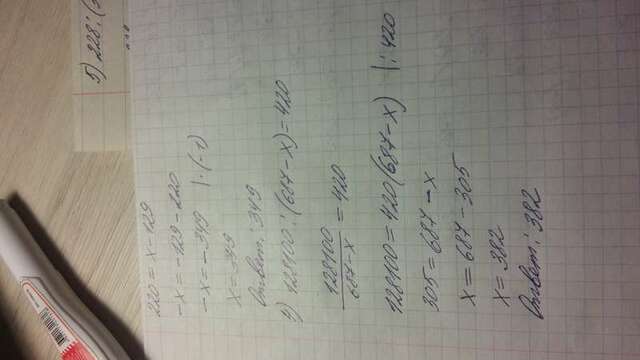 220 = x - 129
-x = -129 - 220
-x = -349 | · (-1)
x = 349
Ответ: 349
128100 : (687 - x) = 420
128100 / 687 - x = 420
128100 = 420(687 - x) | : 420
305 = 687 - x
x = 687 - 305
x = 382
Ответ: 382
5) 228 : (